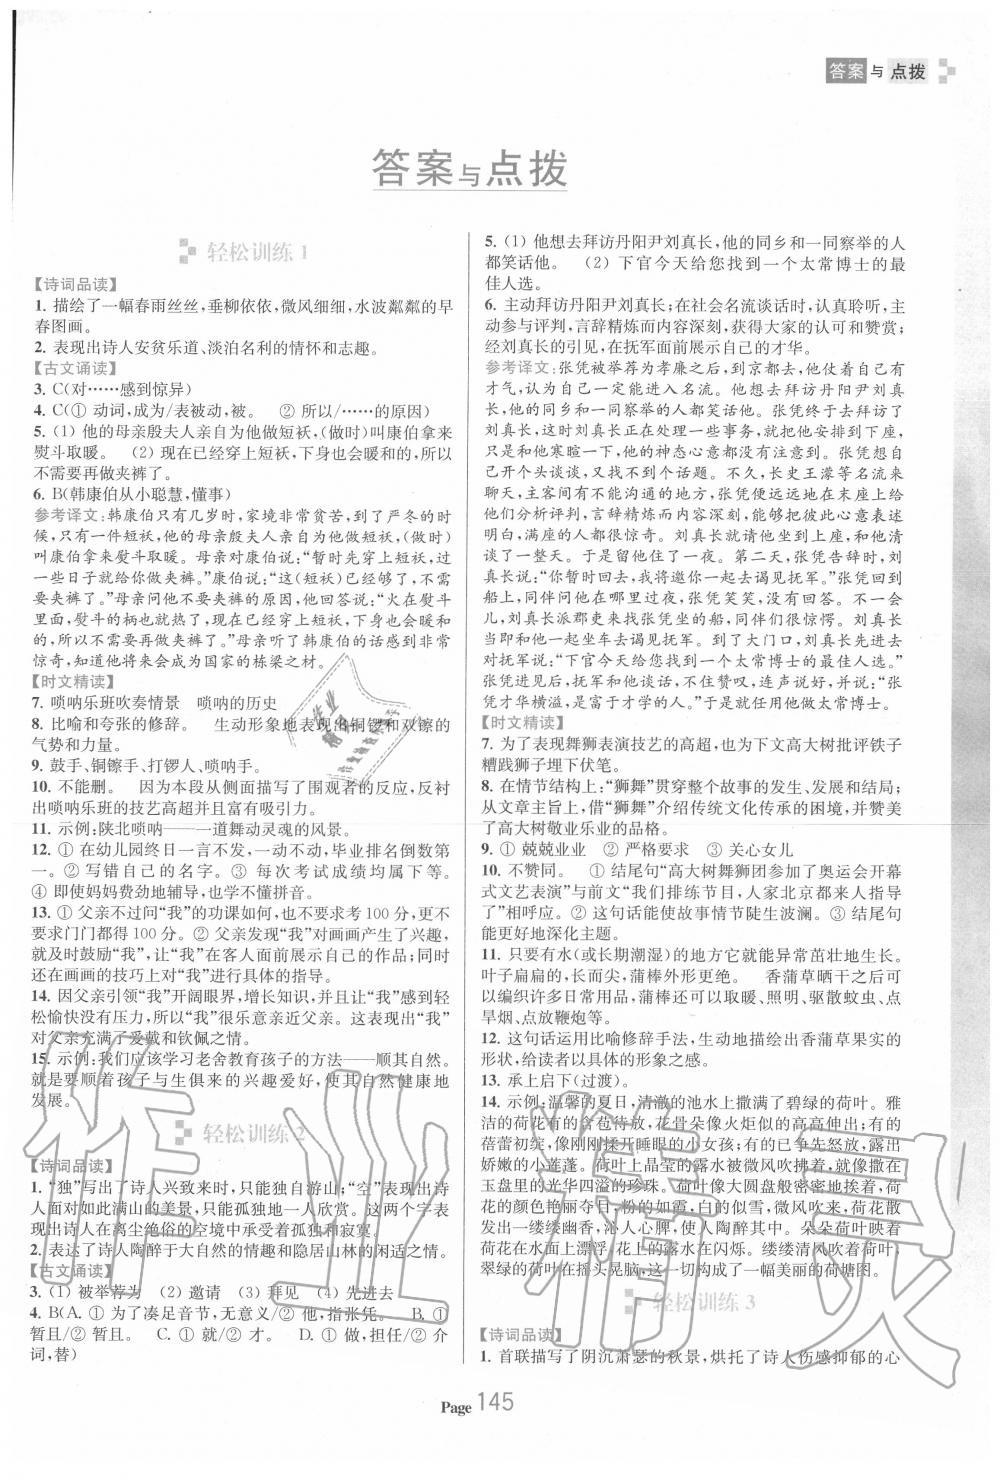 答案与点拨
答案与点拨
轻松训练1
【诗词品读】
1. 描绘了一幅春雨丝丝,垂柳依依,微风细细,水波粼粼的早
春图画。
2. 表现出诗人安贫乐道、淡泊名利的情怀和志趣。
【古文诵读】
3. C(对……感到惊异)
4. C(① 动词,成为/表被动,被。 ② 所以/……的原因)
5. (1) 他的母亲殷夫人亲自为他做短袄,(做时)叫康伯拿来
熨斗取暖。 (2) 现在已经穿上短袄,下身也会热的,所以
不需要再做夹裤了。
6. B(韩康伯从小聪慧,懂事)
参考译文:韩康伯只有几岁时,家境非常贫苦,到了严冬的时
候,只有一件短袄,他的母亲殷夫人亲自为他做短袄,(做时)
叫康伯拿来熨斗取暖。母亲对康伯说:“暂时先穿上短袄,过
一些日子就给你做夹裤。”康伯说:“这(短袄)已经够了,不
需要夹裤了。”母亲问他不要夹裤的原因,他回答说:“火在熨斗
里面,熨斗的柄也就热了,现在已经穿上短袄,下身也会热
的,所以不需要再做夹裤了。”母亲听了韩康伯的话感到非常
惊奇,知道他将来会成为国家的栋梁之材。
【时文精读】
7. 唢呐乐班吹奏情景 唢呐的历史
8. 比喻和夸张的修辞。 生动形象地表现出铜锣和双镲的
气势和力量。
9. 鼓手、铜镲手、打锣人、唢呐手。
10. 不能删。 因为本段从侧面描写了围观者的反应,反衬
出唢呐乐班的技艺高超并且富有吸引力。
11. 示例:陕北唢呐——一道舞动灵魂的风景。
12. ① 在幼儿园终日一言不发,一动不动,毕业排名倒数第
一。② 写错自己的名字。③ 每次考试成绩均属下等。
④ 即使妈妈费劲地辅导,也学不懂拼音。
13. ① 父亲不过问“我”的功课如何,也不要求考100分,更不
要求门门都得100分。② 父亲发现“我”对画画产生了兴趣,
就及时鼓励“我”,让“我”在客人面前展示自己的作品;同时
还在画画的技巧上对“我”进行具体的指导。
14. 因父亲引领“我”开阔眼界,增长知识,并且让“我”感到轻
松愉快没有压力,所以“我”很乐意亲近父亲。这表现出“我”
对父亲充满了爱戴和钦佩之情。
15. 示例:我们应该学习老舍教育孩子的方法——顺其自然。
就是要顺着孩子与生俱来的兴趣爱好,使其自然健康地
发展。
轻松训练2
【诗词品读】
1. “独”写出了诗人兴致来时,只能独自游山;“空”表现出诗
人面对如此满山的美景,只能孤独地一人欣赏。这两个字表
现出诗人在离尘绝俗的空境中承受着孤独和寂寞。
2. 表达了诗人陶醉于大自然的情趣和隐居山林的闲适之情。
【古文诵读】
3. (1) 被举荐为 (2) 邀请 (3) 拜见 (4) 先进去
4. B(A. ① 为了凑足音节,无意义/② 他,指张凭。 B. ①
暂且/② 暂且。 C. ① 就/② 才。 D. ① 做,担任/② 介
词,替)
5. (1) 他想去拜访丹阳尹刘真长,他的同乡和一同察举的人
都笑话他。 (2) 下官今天给您找到一个太常博士的最
佳人选。
6. 主动拜访丹阳尹刘真长;在社会名流谈话时,认真聆听,主
动参与评判,言辞精炼而内容深刻,获得大家的认可和赞赏;
经刘真长的引荐,在抚军面前展示自己的才华。
参考译文:张凭被举荐为孝廉之后,到京都去,他觉得自己有
才气,认为自己一定能进入名流。他想去拜访丹阳尹刘真
长,他的同乡和一同察举的人都笑话他。张凭终于去拜访了
刘真长,这时刘真长正在处理一些事务,就把他安排到下座,
只是和他寒暄一下,他的神态心意都没有注意到。张凭想自
己开个头谈谈,又找不到个话题。不久,长史王濛等名流来
清谈,主客间有不能沟通的地方,张凭便远远地在末座上给
他们分析评判,言辞精炼而内容深刻,能够把彼此心意表述
明白,在座的人都很惊奇。刘真长就请他坐到上座,和他清
谈了一整天。于是留他住了一夜。第二天,张凭告辞时,刘
真长说:“你暂时回去,我将邀你一起去谒见抚军。”张凭回到
船上,同伴问他在哪里过夜,张凭笑笑,没有回答。不一会
儿,刘真长派郡吏来找张凭坐的船,同伴们很惊愕。刘真长
当即和他一起坐车去谒见抚军。到了大门口,刘真长先进去
对抚军说:“下官今天给您找到一个太常博士的最佳人选。”
张凭进见后,抚军和他谈话,不住赞好,连声说好,说:“张
凭才华横溢,是富于才学的人。”于是就任用他做太常博士。
【时文精读】
7. 为了表现舞狮表演技艺的高超,也为下文高大树批评铁子
糟践狮子埋下伏笔。
8. 在情节结构上:“狮舞”贯穿整个故事的发生、发展和结局;
从文章主旨上,借“狮舞”介绍传统文化传承的困境,并赞美
了高大树敬业乐业的品格。
9. ① 兢兢业业 ② 严格要求 ③ 关心女儿
10. 不赞同。 ① 结尾句“高大树舞狮团参加了奥运会开幕
式文艺表演”与前文“我们排练节目,人家北京都来人指导
了”相呼应。② 这句话能使故事情节陡生波澜。③ 结尾句
能更好地深化主题。
11. 只要有水(或长期潮湿)的地方它就能异常茁壮地生长。
叶子扁扁的,长而尖,蒲棒外形更绝。 香蒲草晒干之后可
以编织许多日常用品,蒲棒还可以取暖、照明、驱散蚊虫、点
旱烟、点放鞭炮等。
12. 这句话运用比喻修辞手法,生动地描绘出香蒲草果实的
形状,给读者以具体的形象之感。
13. 承上启下(过渡)。
14. 示例:温馨的夏日,清澈的池水上撒了碧绿的荷叶。雅
洁的荷花有的含苞待放,花骨朵像火炬似的高高伸出,有的
蓓蕾初绽,像刚刚揉开睡眼的小女孩;有的早已怒放,露出
娇嫩的小莲蓬。荷叶上晶莹的露水被微风吹拂着,就像撒在
玉盘里的光华四溢的珍珠。荷叶像大圆盘般密密地挨着,荷
花的颜色艳丽夺目,粉的如霞,白的似雪,微风吹来,荷花
发出一缕缕幽香,沁人心脾,使人陶醉其中。朵朵荷花映着
荷花在水面上漂浮,花上的露水在闪烁。缕缕清风吹动荷花,
翠绿的荷叶在摇头晃脑,这一切构成了一幅美丽的荷塘图。
轻松训练3
【诗词品读】
1. 首联描写了阴沉萧瑟的秋景,烘托了诗人伤感抑郁的心
Page 145
作业精灵